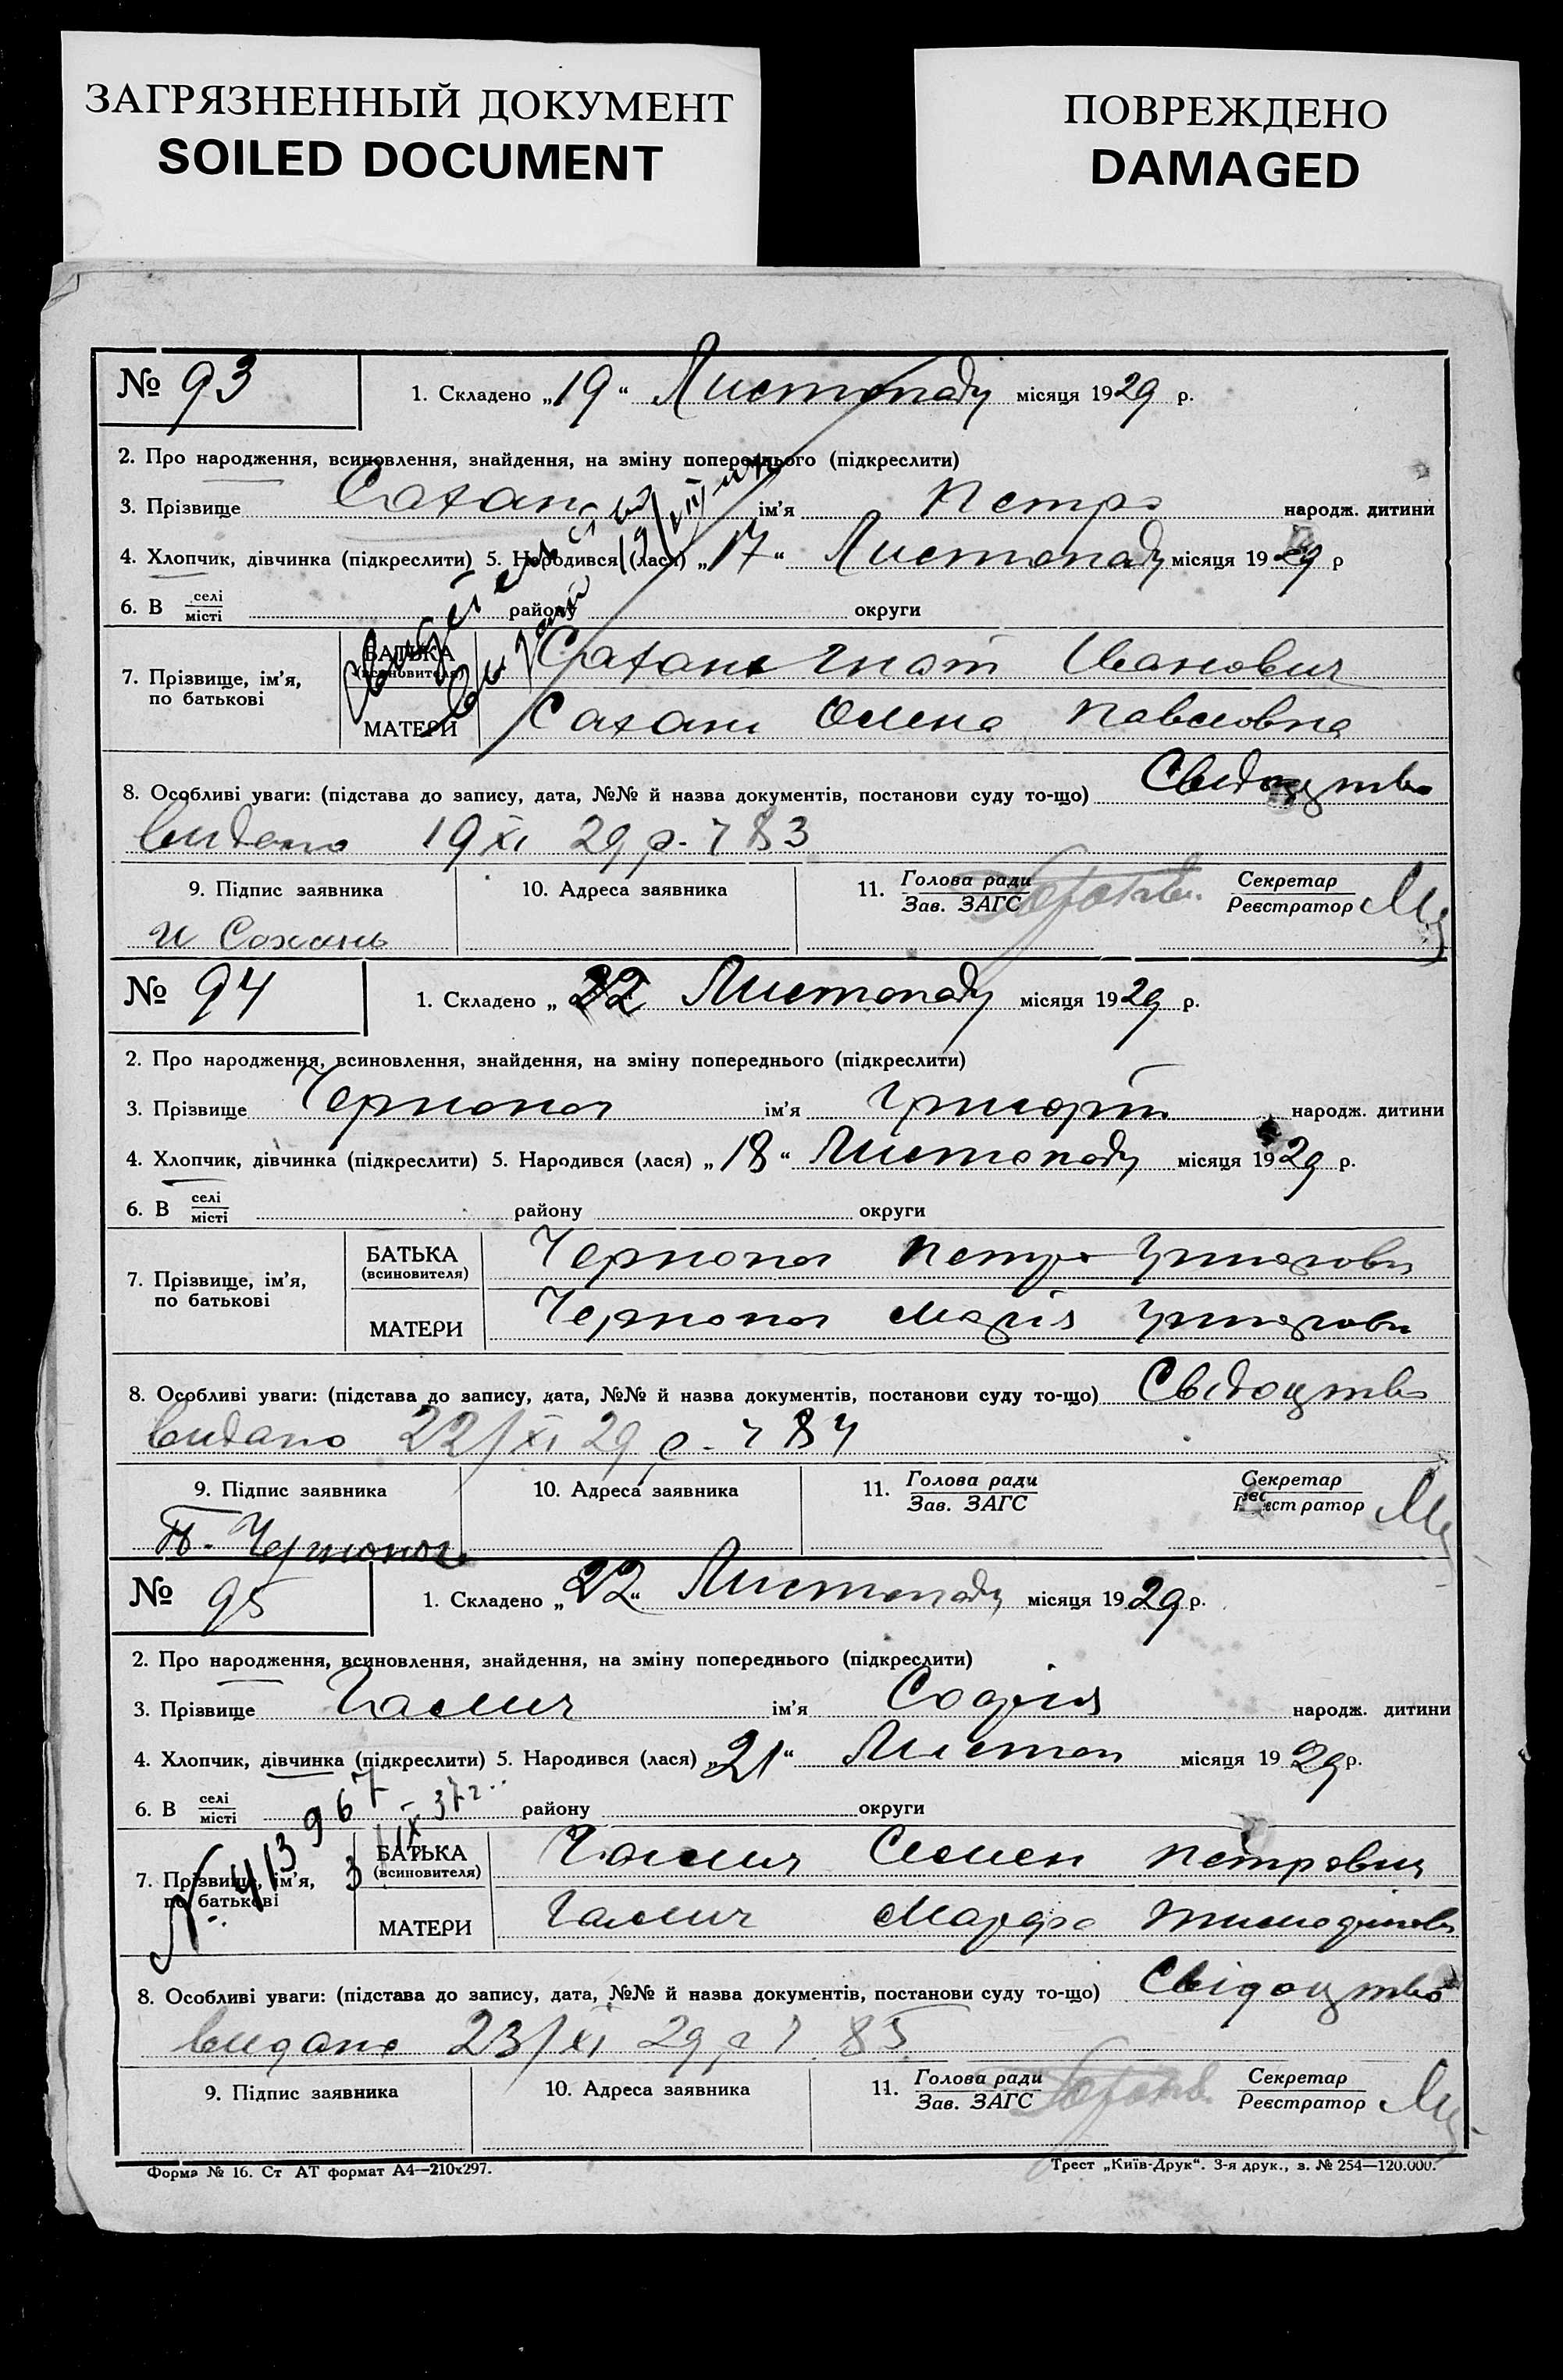 ЗАГРЯЗНЕННЫЙ ДОКУМЕНТ
SOILED DOCUMENT
ПОВРЕЖДЕНО
DAMAGED
№ 93
1. Складено „19“ Листопаду місяця 1929 р.
2. Про народження, всиновлення, знайдення, на зміну попереднього (підкреслити)
3. Прізвище Сахань ім'я Петро народж. дитини
4. Хлопчик, дівчинка (підкреслити) 5. Народився (лася) „17“ Листопаду місяця 1929 р
6. В селі місті району округи
7. Прізвище, ім'я, по батькові
БАТЬКА (всиновителя) Сахань Гнат Іванович
МАТЕРИ Сахань Олена Павловна
8. Особливі уваги: (підстава до запису, дата, №№ й назва документів, постанови суду то-що) Свидоцтво
видано 19 XI 29 р. ч 83
9. Підпис заявника
10. Адреса заявника
11. Голова ради Зав. ЗАГС
Секретар Реєстратор
И Сохань
№ 94
1. Складено „22 Листопаду місяця 1929 р.
2. Про народження, всиновлення, знайдення, на зміну попереднього (підкреслити)
3. Прізвище Чорноног ім'я Григорій народж. дитини
4. Хлопчик, дівчинка (підкреслити) 5. Народився (лася) „18“ Листопаду місяця 1929 р.
6. В селі місті району округи
7. Прізвище, ім'я, по батькові
БАТЬКА (всиновителя) Петро
МАТЕРИ Марія
8. Особливі уваги: (підстава до запису, дата, №№ й назва документів, постанови суду то-що) Свідоцтво
видано 22/XI 29 р. ч 84
9. Підпис заявника
10. Адреса заявника
11. Голова ради Зав. ЗАГС
Секретар Реєстратор
П.
№ 95
1. Складено „22“ Листопаду місяця 1929 р.
2. Про народження, всиновлення, знайдення, на зміну попереднього (підкреслити)
3. Прізвище Галич ім'я Софія народж. дитини
4. Хлопчик, дівчинка (підкреслити) 5. Народився (лася) „21“ Листоп місяця 1929 р.
6. В селі місті району округи
7. Прізвище, ім'я, по батькові
БАТЬКА (всиновителя) Галич Семен Петрович
МАТЕРИ Галич Марфа
8. Особливі уваги: (підстава до запису, дата, №№ й назва документів, постанови суду то-що) Свідоцтво
видано 23/XI 29 р ч 85
9. Підпис заявника
10. Адреса заявника
11. Голова ради Зав. ЗАГС
Секретар Реєстратор
Форма № 16. Ст АТ формат А4—210х297.
Трест „Київ-Друк“. 3-я друк., з. № 254—120.000.